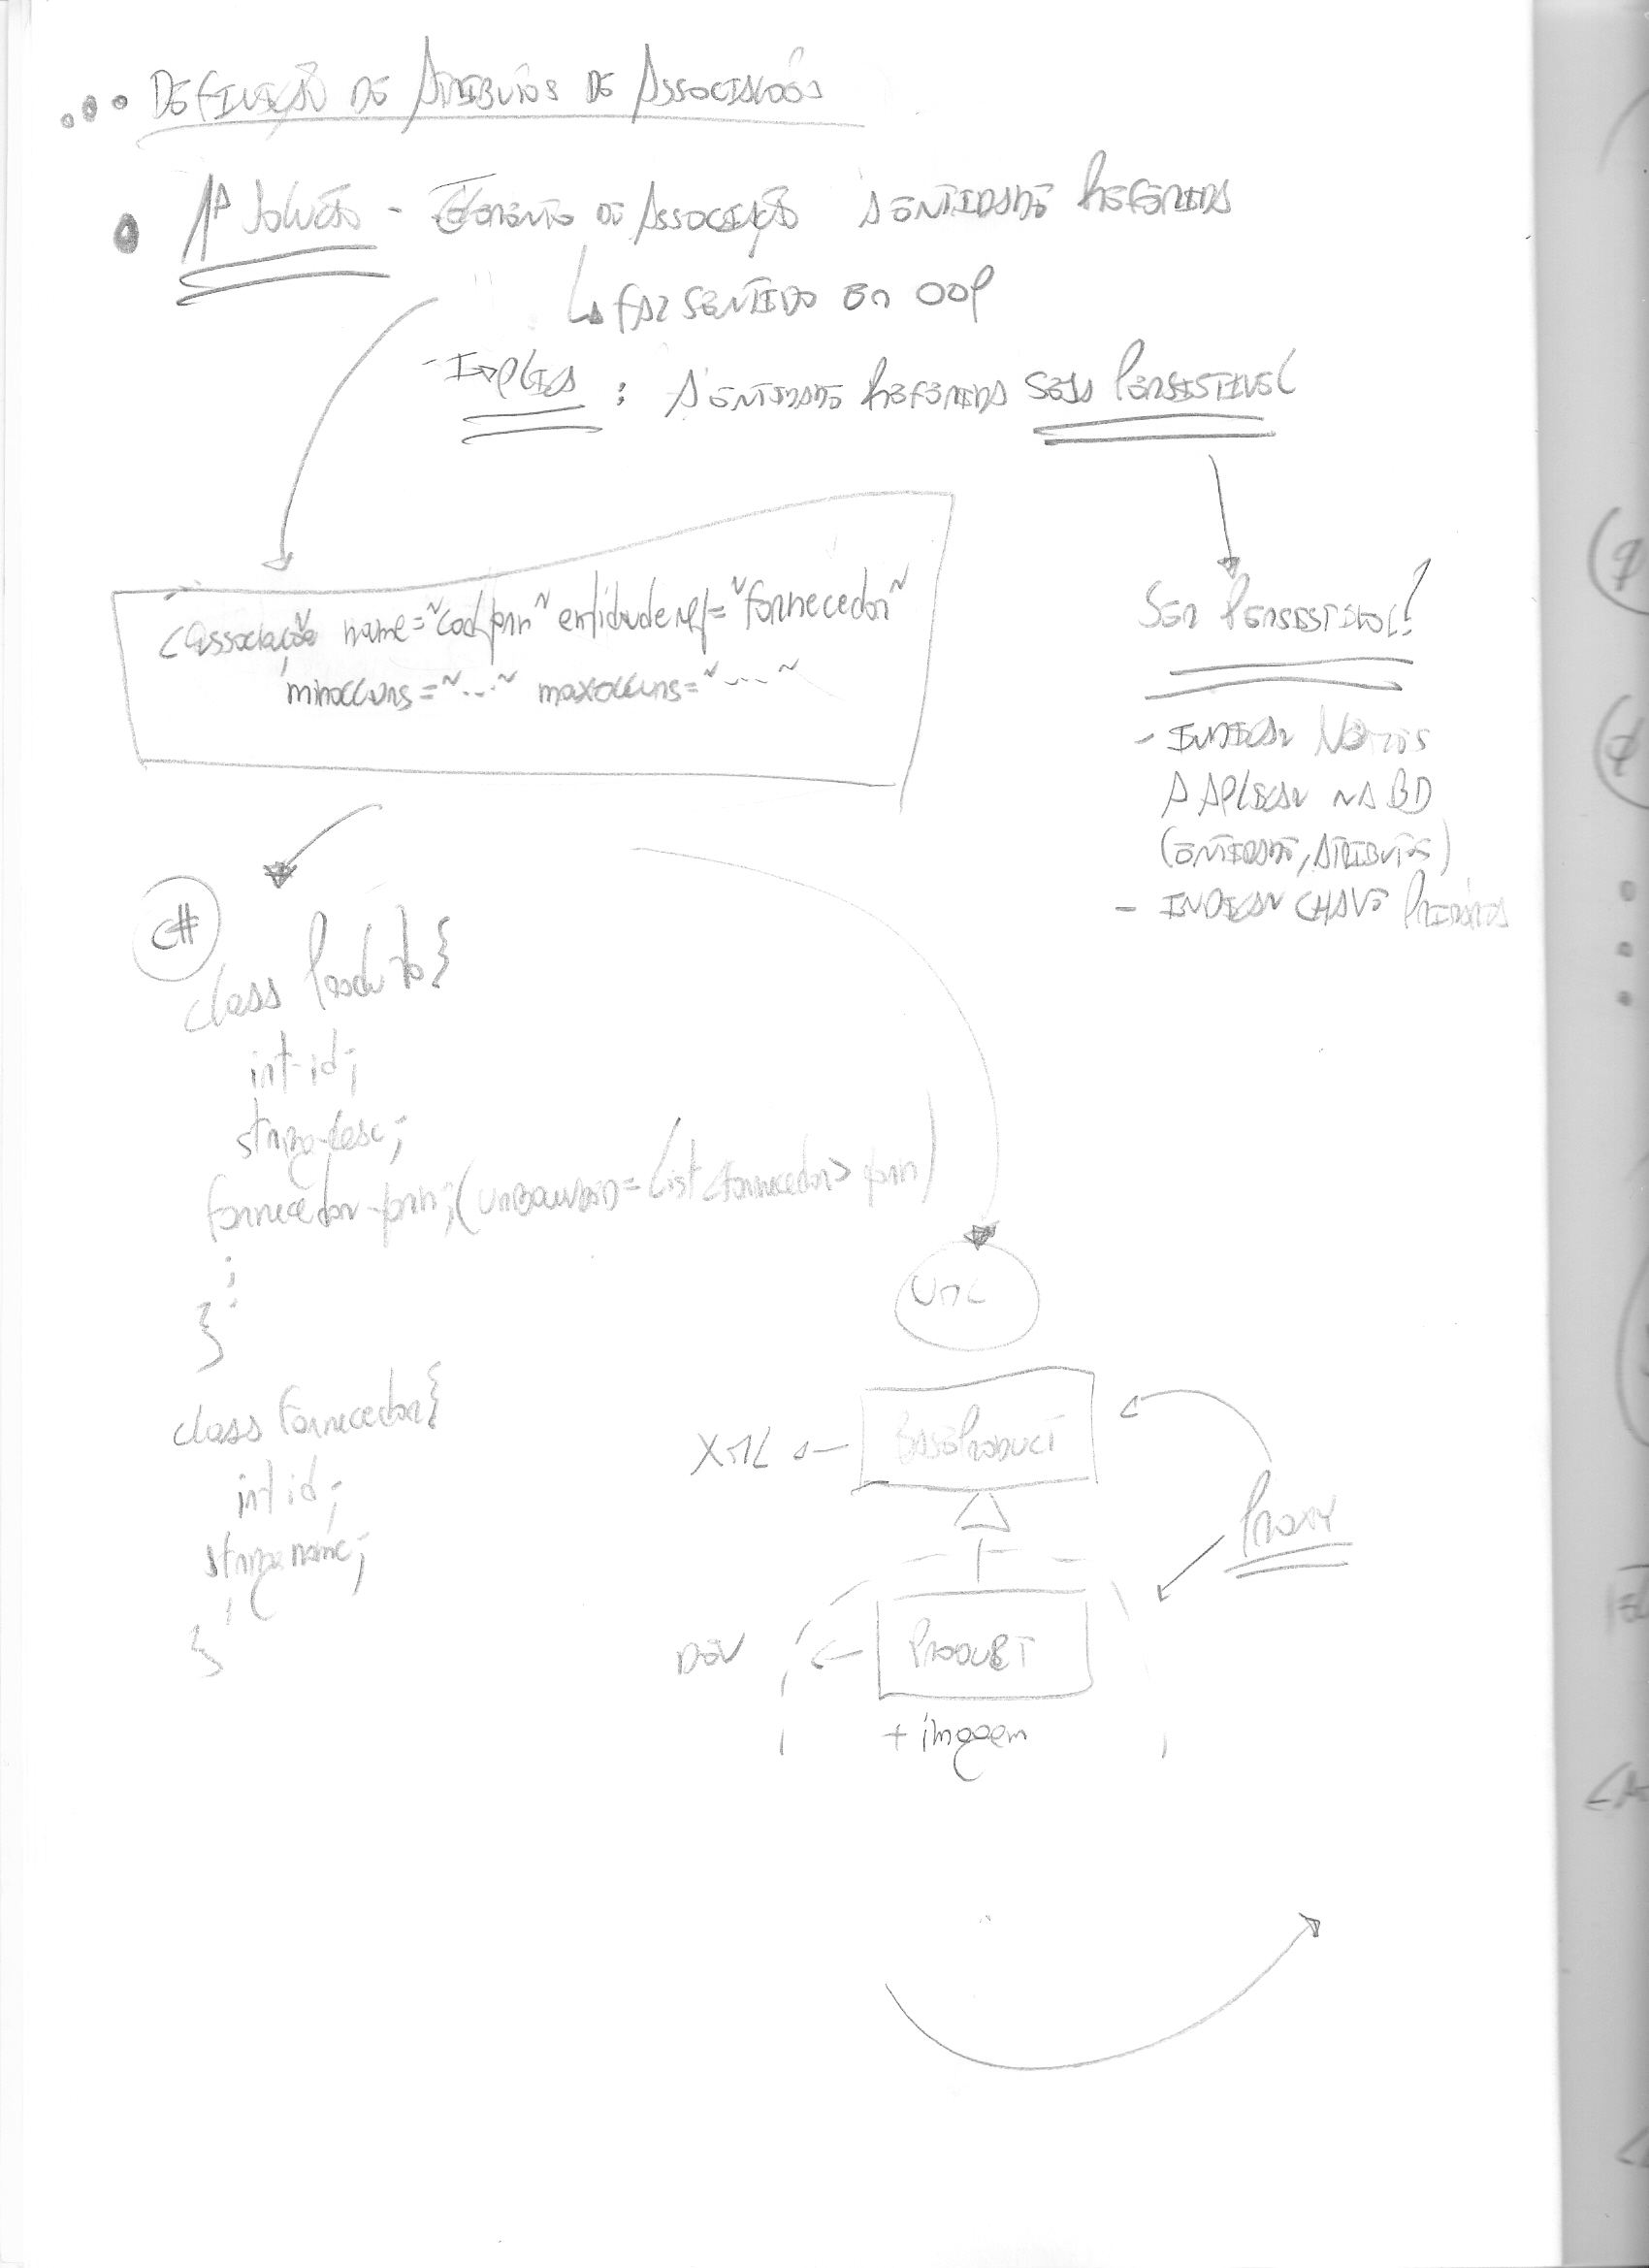 ... Definição de Atributos de Associações
• 1ª Solução - Elemento de Associação à entidade referida
↳ faz sentido em OOP
- Implica : A entidade referida seja persistível
<associação name="cod_forn" entidaderef="fornecedor"
minoccurs="..." maxoccurs="..."
Ser persistível!
- Indicar nomes
a aplicar na BD
(entidade, atributos)
- Indicar chave primária
C#
class Produto{
int id;
string desc;
fornecedor forn; (unbounded = List<fornecedor> forn)
}
class fornecedor{
int id;
string name;
}
UML
XML
BaseProduct
Proxy
DEV
Product
+ imagem